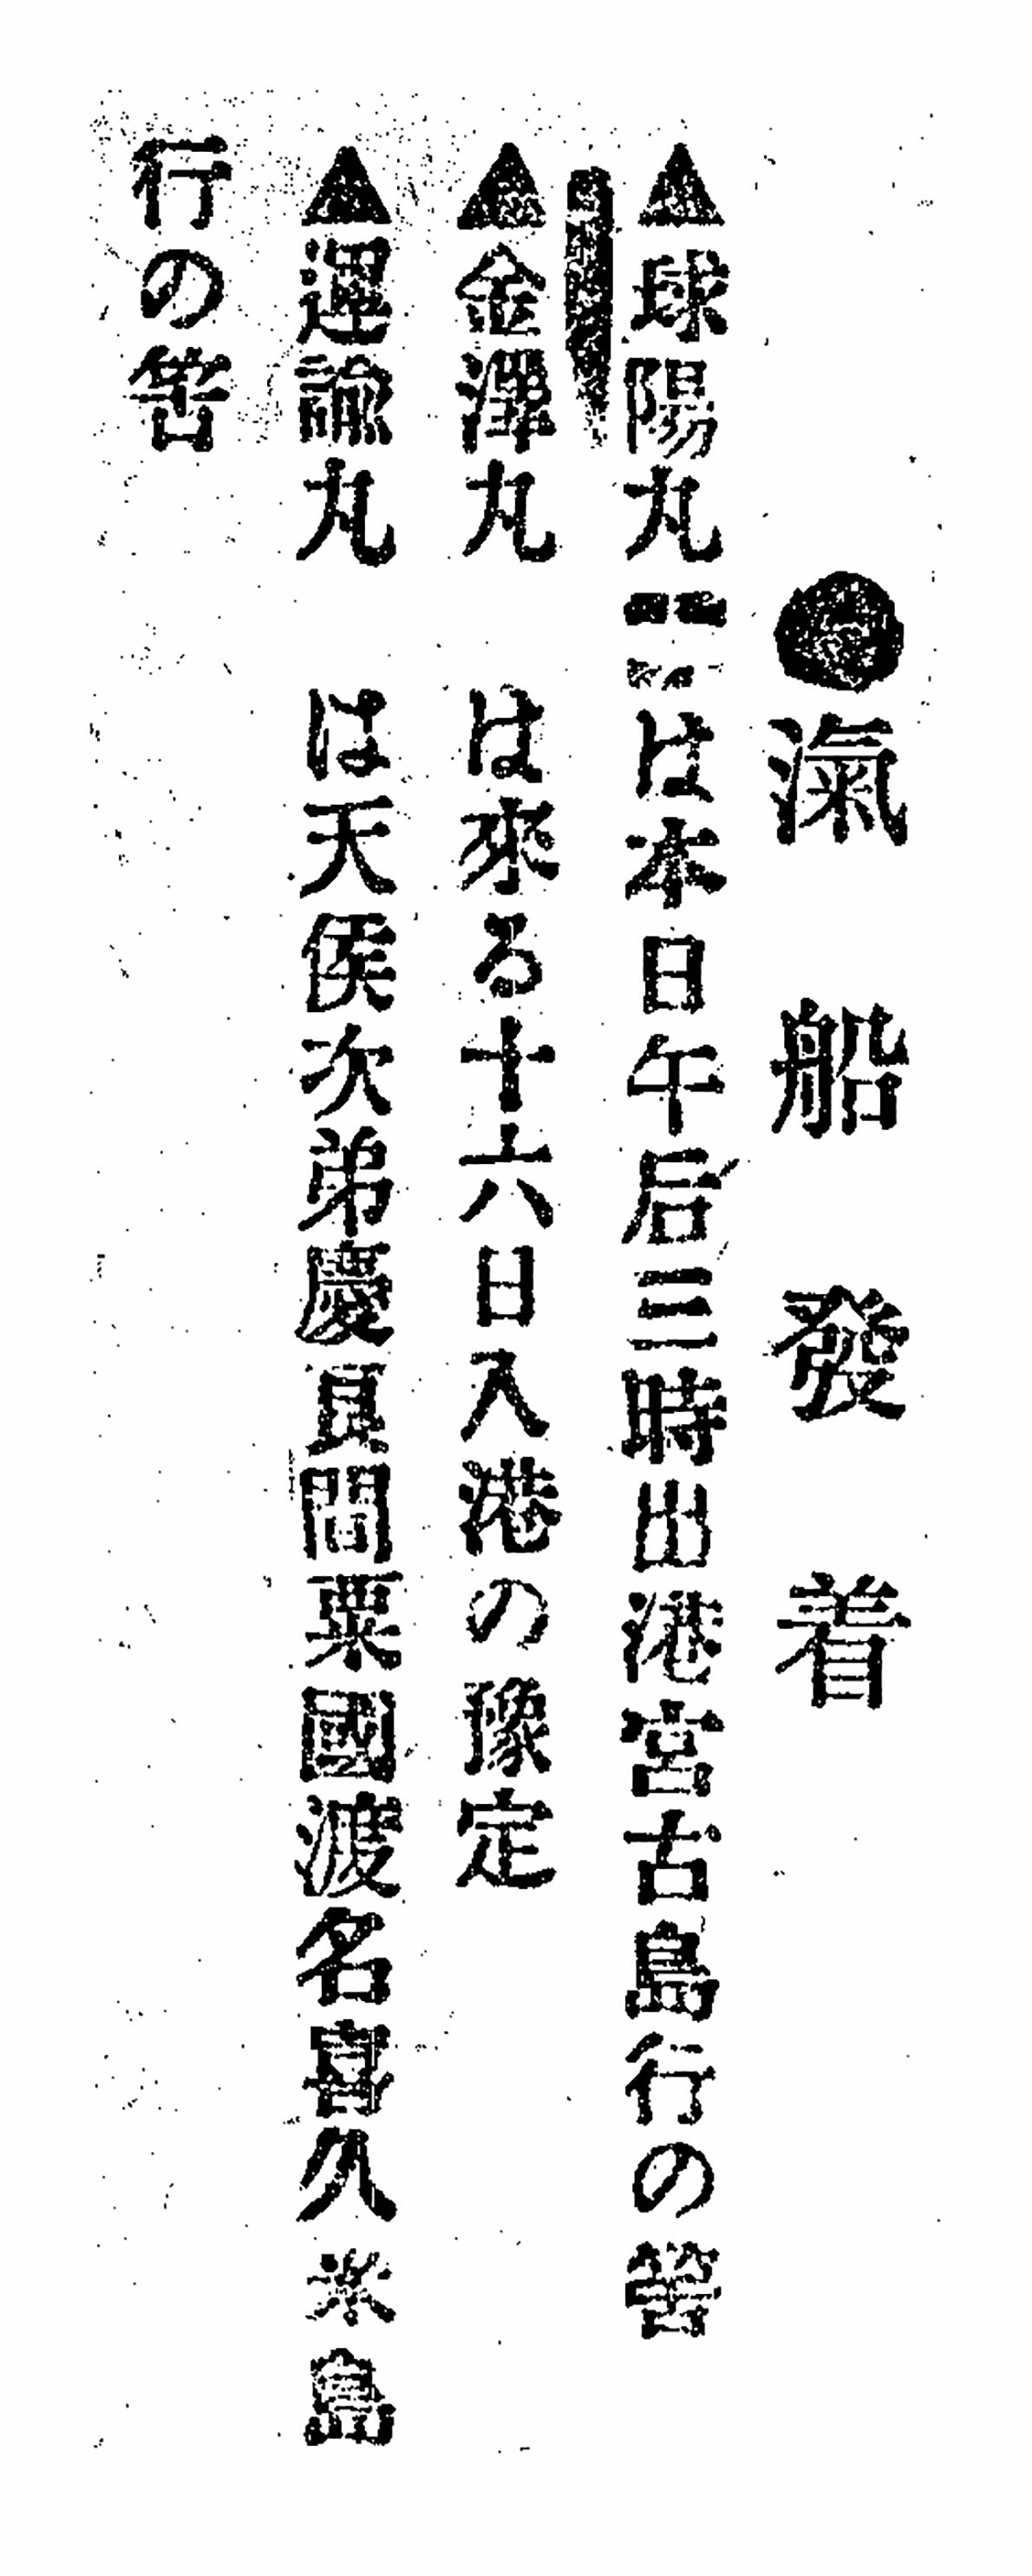 ●滊船發着
▲球陽丸は本日午后三時出港宮古島行の筈
▲金澤丸 は來る十六日入港の豫定
▲運諭丸 は天候次弟慶良間粟國渡名喜久米島
行の筈